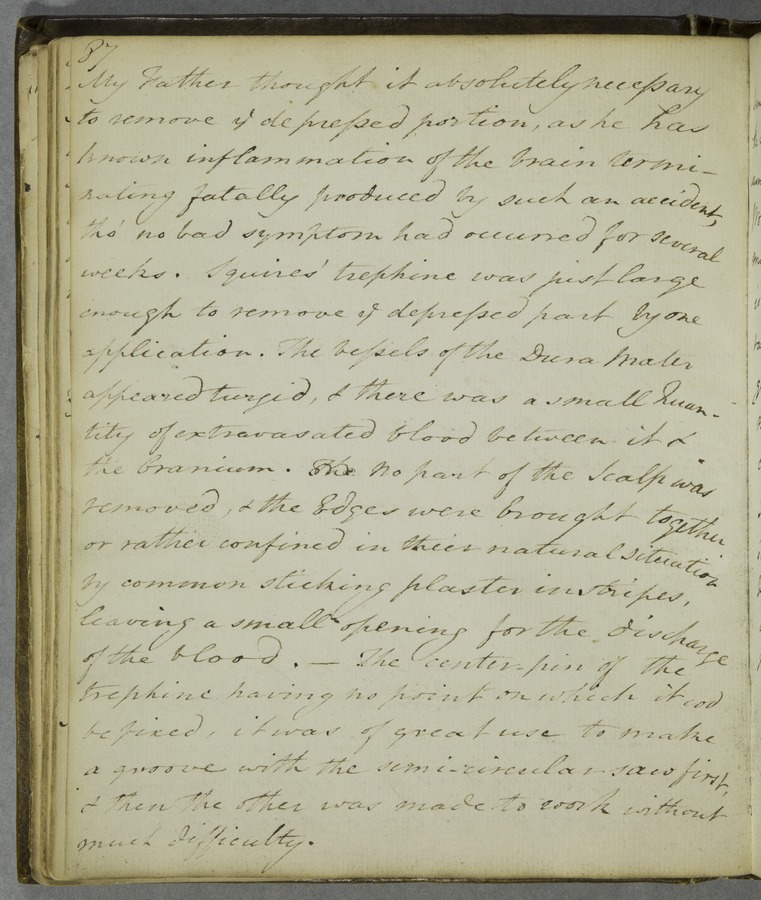 87
My Father thought it absolutely necessary
to remove ye depressed portion, as he has
known inflammation of the brain termi-
nating fatally produced by such an accident,
tho' no bad symptom had occurred for several
weeks. Squires' trephine was just large
enough to remove ye depressed part by one
application. The vessels of the Dura Mater
appeared turgid, & there was a small Quan-
tity of extravasated blood between it &
the Cranium. The No part of the Scalp was
removed, & the Edges were brought together
or rather confined in their natural situation
by common sticking plaster in stripes,
leaving a small opening for the discharge
of the blood. — The center-pin of the
trephine having no point on which it cod
be fixed, it was of great use to make
a groove with the semi-circular saw first,
& then the other was made to work without
much difficulty.